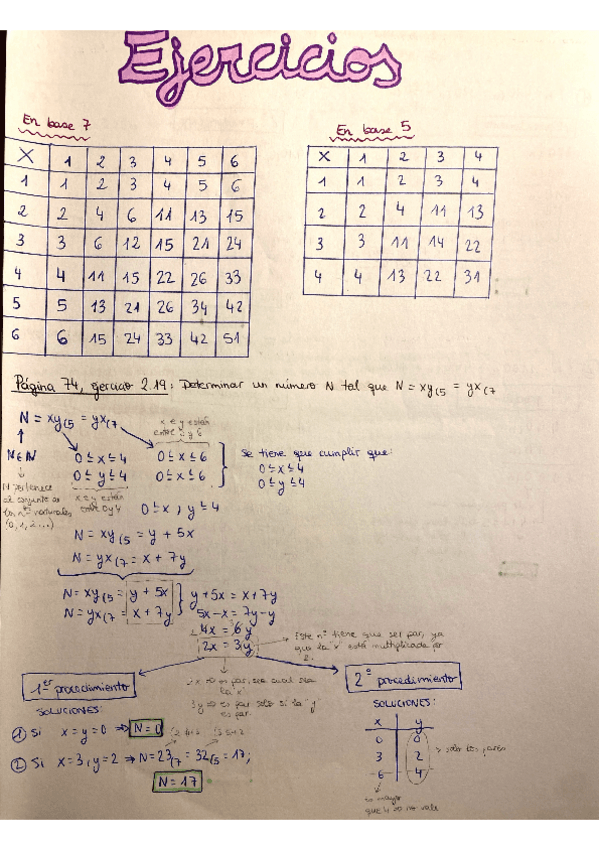 Ejercicios
En base 7
X 1 2 3 4 5 6
1 1 2 3 4 5 6
2 2 4 6 11 13 15
3 3 6 12 15 21 24
4 4 11 15 22 26 33
5 5 13 21 26 34 42
6 6 15 24 33 42 51
En base 5
X 1 2 3 4
1 1 2 3 4
2 2 4 11 13
3 3 11 14 22
4 4 13 22 31
Página 74, ejercicio 2.19: Determinar un número N tal que N = xy(5 = yx(7
N = xy(5 = yx(7
x e y están
entre 0 y 6
N ∈ N
0 ≤ x ≤ 4
0 ≤ y ≤ 4
0 ≤ x ≤ 6
0 ≤ x ≤ 6
Se tiene que cumplir que:
0 ≤ x ≤ 4
0 ≤ y ≤ 4
N pertenece
al conjunto de
los nos naturales
(0, 1, 2 ...)
x e y están
entre 0 y 4
0 ≤ x, y ≤ 4
N = xy(5 = y + 5x
N = yx(7 = x + 7y
N = xy(5 = y + 5x
N = yx(7 = x + 7y
y + 5x = x + 7y
5x - x = 7y - y
4x = 6y
2x = 3y
Este nº tiene que ser par, ya
que la "x" está multiplicada por
2.
2x ⇒ es par, sea cual sea
la "x"
3y ⇒ es par solo si la "y"
es par.
1er procedimiento
SOLUCIONES:
① Si x = y = 0 ⇒ N = 0
② Si x = 3, y = 2 ⇒ N = 23(7 = 32(5 = 17;
N = 17
2º procedimiento
SOLUCIONES:
x y
0 0
3 2
6 4
solo los pares
es mayor
que 4 no vale